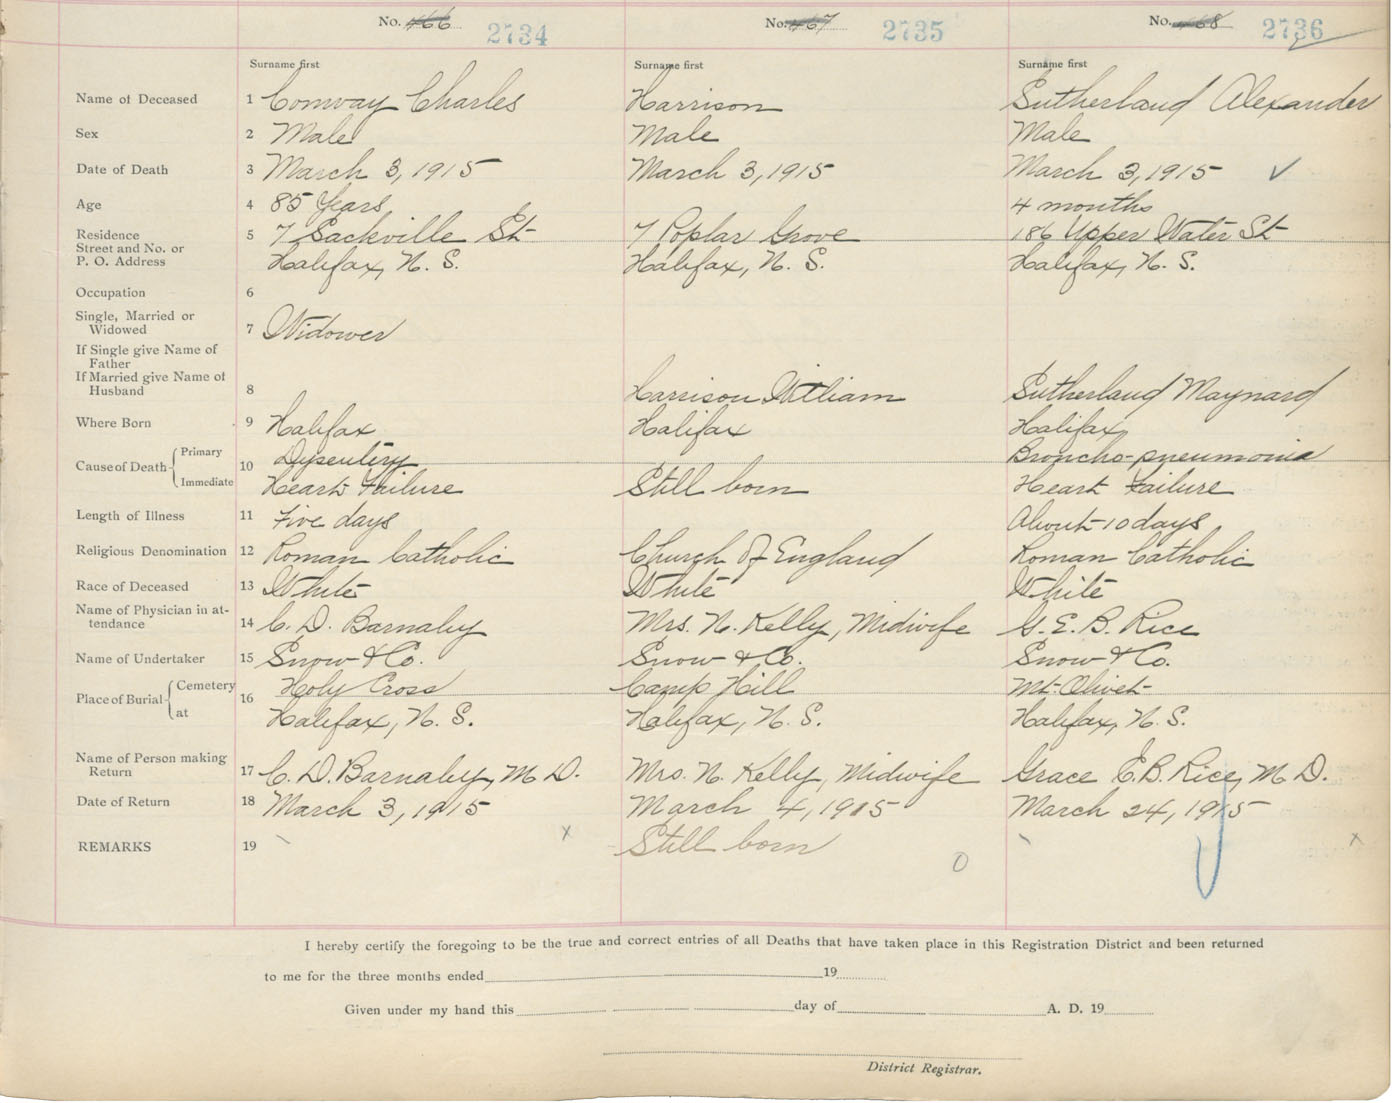 No. 466 2734 No. 467 2735 No. 468 2736
Surname first Surname first Surname first
Name of Deceased 1 Conway Charles Harrison Sutherland Alexander
Sex 2 Male Male Male
Date of Death 3 March 3, 1915 March 3, 1915 March 3, 1915 ✓
Age 4 85 Years 4 months
Residence 5 7 Sackville St 7 Poplar Grove 186 Upper Water St
Street and No. or
P. O. Address Halifax, N. S. Halifax, N. S. Halifax, N. S.
Occupation 6
Single, Married or
Widowed 7 Widower
If Single give Name of
Father
If Married give Name of
Husband 8 Harrison William Sutherland Maynard
Where Born 9 Halifax Halifax Halifax
Cause of Death Primary 10 Dysentery Broncho-pneumonia
Immediate Heart Failure Still born Heart Failure
Length of Illness 11 Five days About 10 days
Religious Denomination 12 Roman Catholic Church of England Roman Catholic
Race of Deceased 13 White White White
Name of Physician in at-
tendance 14 C. D. Barnaby Mrs. N. Kelly, Midwife G. E. B. Rice
Name of Undertaker 15 Snow & Co. Snow & Co. Snow & Co.
Place of Burial Cemetery 16 Holy Cross Camp Hill Mt. Olivet
at Halifax, N. S. Halifax, N. S. Halifax, N. S.
Name of Person making
Return 17 C. D. Barnaby, M D. Mrs. N. Kelly, Midwife Grace E. B. Rice, M D.
Date of Return 18 March 3, 1915 March 4, 1915 March 24, 1915
REMARKS 19 x Still born 0 x
I hereby certify the foregoing to be the true and correct entries of all Deaths that have taken place in this Registration District and been returned
to me for the three months ended 19
Given under my hand this day of A. D. 19
District Registrar.